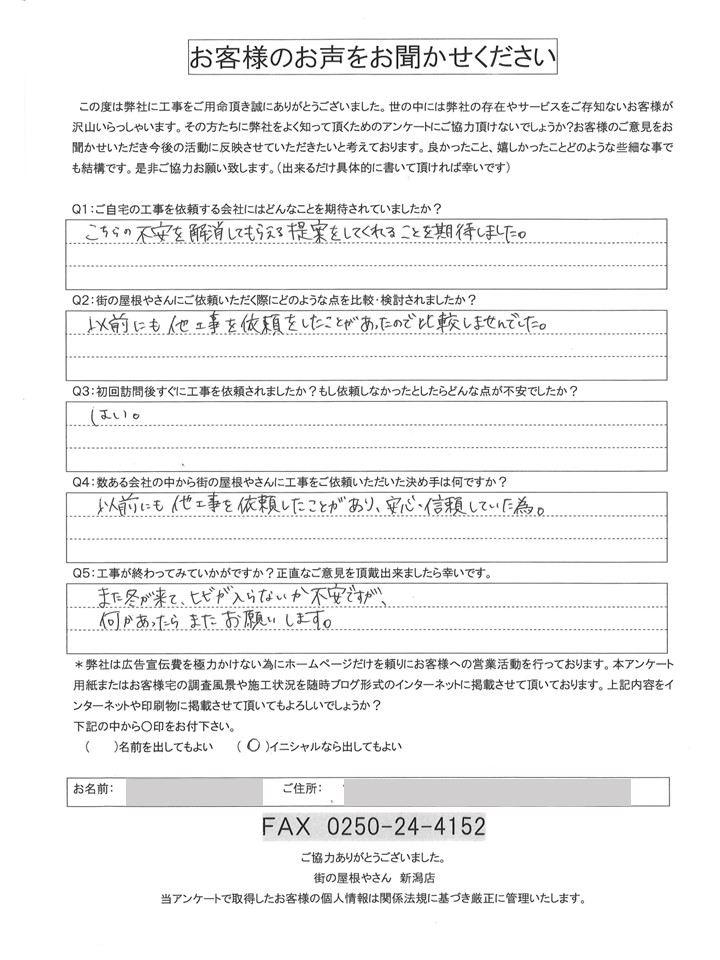 お客様のお声をお聞かせください
この度は弊社に工事をご用命頂き誠にありがとうございました。世の中には弊社の存在やサービスをご存知ないお客様が
沢山いらっしゃいます。その方たちに弊社をよく知って頂くためのアンケートにご協力頂けないでしょうか?お客様のご意見をお
聞かせいただき今後の活動に反映させていただきたいと考えております。良かったこと、嬉しかったことどのような些細な事で
も結構です。是非ご協力お願い致します。(出来るだけ具体的に書いて頂ければ幸いです)
Q1:ご自宅の工事を依頼する会社にはどんなことを期待されていましたか?
こちらの不安を解消してもらえる提案をしてくれることを期待しました。
Q2:街の屋根やさんにご依頼いただく際にどのような点を比較・検討されましたか?
以前にも他工事を依頼をしたことがあったので比較しませんでした。
Q3:初回訪問後すぐに工事を依頼されましたか?もし依頼しなかったとしたらどんな点が不安でしたか?
はい。
Q4:数ある会社の中から街の屋根やさんに工事をご依頼いただいた決め手は何ですか?
以前にも他工事を依頼したことがあり、安心・信頼していた為。
Q5:工事が終わってみていかがですか?正直なご意見を頂戴出来ましたら幸いです。
また冬が来て、ヒビが入らないか不安ですが、
何かあったらまたお願いします。
*弊社は広告宣伝費を極力かけない為にホームページだけを頼りにお客様への営業活動を行っております。本アンケート
用紙またはお客様宅の調査風景や施工状況を随時ブログ形式のインターネットに掲載させて頂いております。上記内容をイ
ンターネットや印刷物に掲載させて頂いてもよろしいでしょうか?
下記の中から〇印をお付下さい。
( )名前を出してもよい (〇)イニシャルなら出してもよい
お名前: ご住所:
FAX 0250-24-4152
ご協力ありがとうございました。
街の屋根やさん 新潟店
当アンケートで取得したお客様の個人情報は関係法規に基づき厳正に管理いたします。